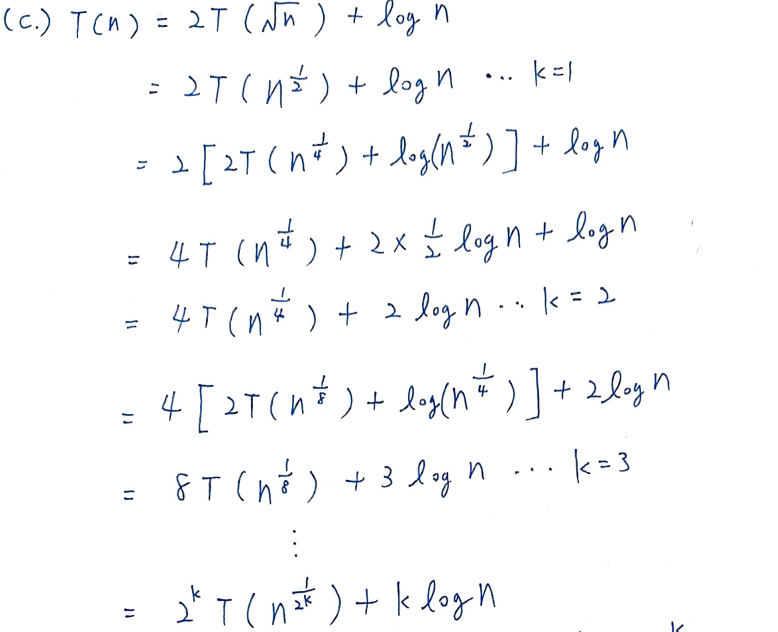 (c.) T(n) = 2T(√n) + log n
= 2T(n^{1/2}) + log n ... k=1
= 2[2T(n^{1/4}) + log(n^{1/2})] + log n
= 4T(n^{1/4}) + 2 × 1/2 log n + log n
= 4T(n^{1/4}) + 2 log n ... k = 2
= 4[2T(n^{1/8}) + log(n^{1/4})] + 2 log n
= 8T(n^{1/8}) + 3 log n ... k=3
⋮
= 2^k T(n^{1/2^k}) + k log n